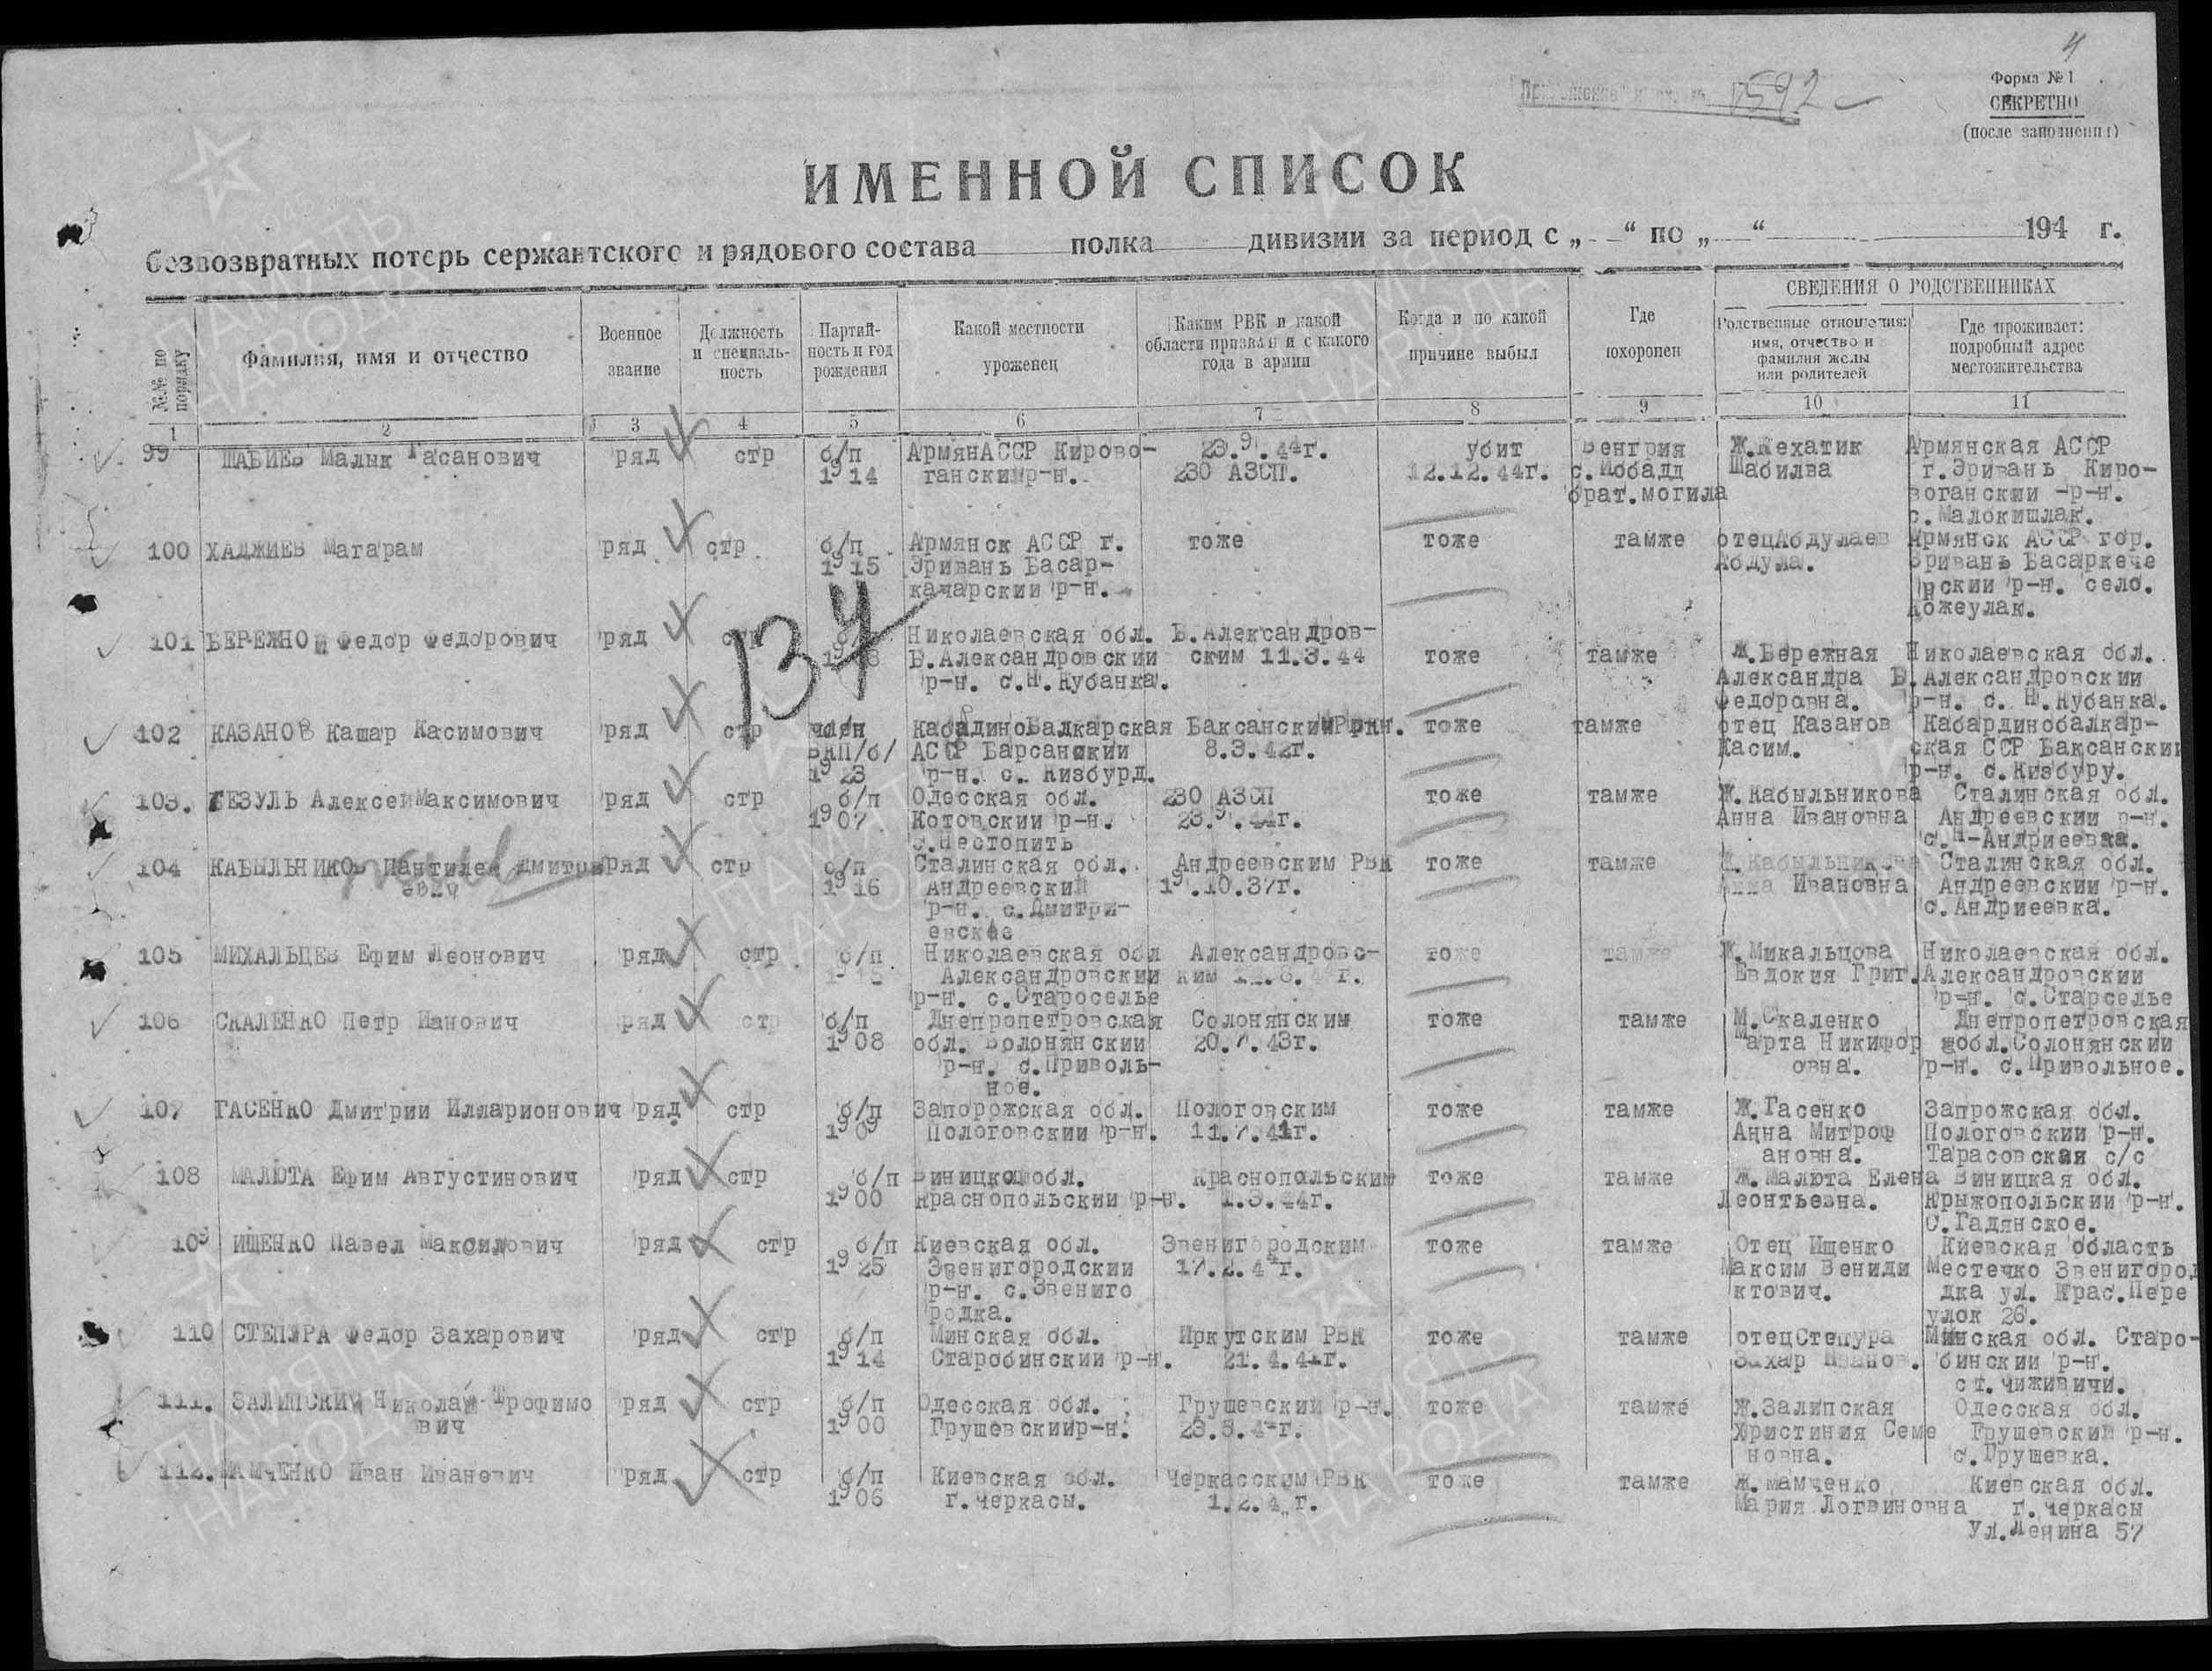 4
592
Форма № 1
СЕКРЕТНО
(после заполнения)
ИМЕННОЙ СПИСОК
безвозвратных потерь сержантского и рядового состава полка дивизии за период с „ “ по „ “ 194 г.
№№ по порядку
Фамилия, имя и отчество
Военное звание
Должность и специальность
Партийность и год рождения
Какой местности уроженец
Каким РВК и какой области призван и с какого года в армии
Когда и по какой причине выбыл
Где похоронен
СВЕДЕНИЯ О РОДСТВЕННИКАХ
Родственные отношения: имя, отчество и фамилия жены или родителей
Где проживает: подробный адрес местожительства
1 2 3 4 5 6 7 8 9 10 11
99 ШАБИЕВ Малык Гасанович ряд стр б/п АрмянАССР Кирово- 23.9.44г. убит Венгрия Ж.Кехатик Армянская АССР
1914 ганскийр-н. 230 АЗСП. 12.12.44г. с.Иббадд Шабилва г.Эривань Киро-
брат.могила воганский -р-н.
с.Малокишлак.
100 ХАДЖИЕВ Магарам ряд стр б/п Армянск АССР г. тоже тоже тамже отецАбдулаев Армянск АССР гор.
1915 Эривань Басар- Абдула. Эривань Басаркече
качарский р-н. рский р-н. село.
Кожеулак.
137
101 БЕРЕЖНОЙ Федор Федорович ряд стр Николаевская обл. В.Александров-
В.Александровский ским 11.3.44 тоже тамже Ж.Бережная Николаевская обл.
р-н. с.Н.Кубанка. Александра В.Александровский
Федоровна. р-н. с. Н.Кубанка.
102 КАЗАНОВ Кашар Касимович ряд стр член КабадиноБалкарская Баксанским тоже тамже отец Казанов Кабардинобалкар-
ВКП/б/ АССР Барсанский 8.3.42г. Касим. ская ССР Баксанский
1923 р-н. с. Кизбурд. р-н. с.Кизбуру.
103. ГЕЗУЛЬ АлексейМаксимович ряд стр б/п Одесская обл. 230 АЗСП тоже тамже Ж.Кабыльникова Сталинская обл.
1907 Котовский р-н. 23.9.44г. Анна Ивановна Андреевский р-н.
с.Нестопить с.Н-Андриеевка.
104 КАБЫЛЬНИКОВ Пантилей Дмитри ряд стр б/п Сталинская обл. Андреевским РВК тоже тамже Ж.Кабыльникова Сталинская обл.
евич 1916 Андреевский 19.10.37г. Анна Ивановна Андреевский р-н.
р-н. с.Дмитри- с.Андриеевка.
евское
105 МИХАЛЬЦЕВ Ефим Леонович ряд стр б/п Николаевская обл Александровс- тоже тамже Ж.Микальцова Николаевская обл.
Александровский ким Евдокия Григ. Александровский
р-н. с.Староселье р-н. с.Старселье
106 СКАЛЕНКО Петр Ианович ряд стр б/п Днепропетровская Солонянским тоже тамже М.Скаленко Днепропетровская
1908 обл. Солонянский 20.7.43г. Марта Никифор обл.Солонянский
р-н. с.Приволь- овна. р-н. с.Привольное.
ное.
107 ГАСЕНКО Дмитрий Илларионович ряд стр б/п Запорожская обл. Пологовским тоже тамже Ж.Гасенко Запрожская обл.
1909 Пологовский р-н. 11.7.41г. Анна Митроф Пологовский р-н.
ановна. Тарасовская с/с
108 МАЛЮТА Ефим Августинович ряд стр б/п Виницкой обл. Краснопольским тоже тамже Ж.Малюта Елена Виницкая обл.
1900 Краснопольский р-н. 1.3.44г. Леонтьевна. Крыжопольский р-н.
С.Гадянское.
109 ИЩЕНКО Павел Максимович ряд стр б/п Киевская обл. Звенигородским тоже тамже Отец Ищенко Киевская область
1925 Звенигородский 17.2.44г. Максим Вениди Местечко Звенигород
р-н. с.Звениго ктович. дка ул. Крас.Пере
родка. улок 26.
110 СТЕПУРА Федор Захарович ряд стр б/п Минская обл. Иркутским РВК тоже тамже отецСтепура Минская обл. Старо-
1914 Старобинский р-н. 21.4.41г. Захар Иванов. бинский р-н.
ст.чиживичи.
111. ЗАЛИПСКИЙ Николай Трофимо ряд стр б/п Одесская обл. Грушевский р-н. тоже тамже Ж.Залипская Одесская обл.
вич 1900 Грушевскийр-н. Христиния Семе Грушевский р-н.
новна. с.Грушевка.
112. МАМЧЕНКО Иван Иванович ряд стр б/п Киевская обл. Черкасским РВК тоже тамже Ж.Мамченко Киевская обл.
1906 г.Черкасы. Мария Логвиновна г.Черкасы
Ул.Ленина 57
ПАМЯТЬ НАРОДА